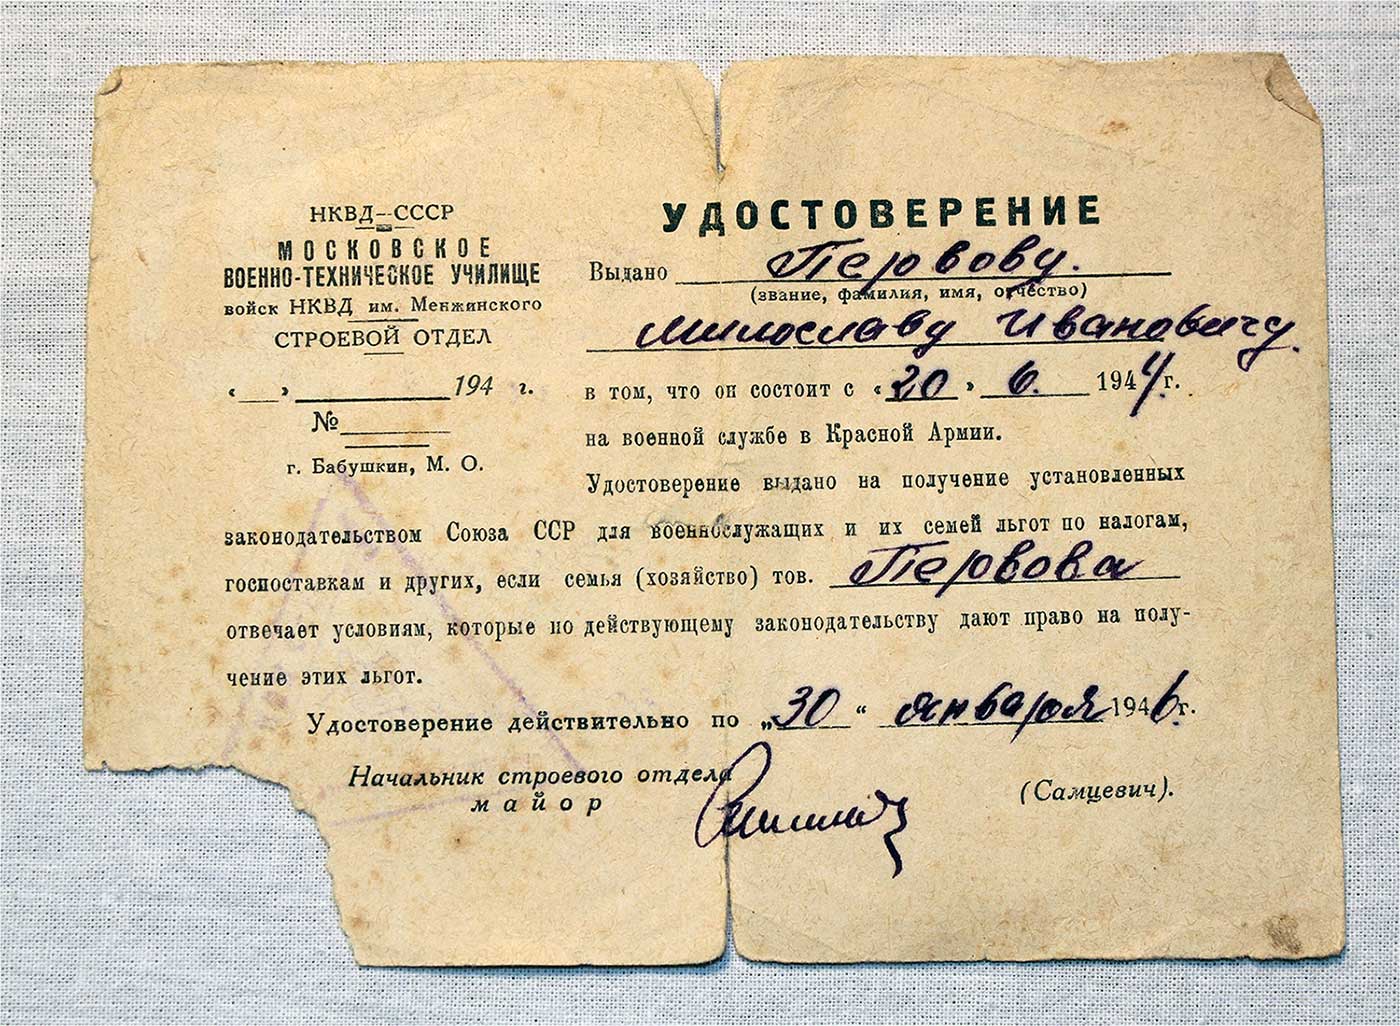 НКВД—СССР
МОСКОВСКОЕ
ВОЕННО-ТЕХНИЧЕСКОЕ УЧИЛИЩЕ
войск НКВД им. Менжинского
СТРОЕВОЙ ОТДЕЛ
« » 194 г.
№
г. Бабушкин, М. О.
УДОСТОВЕРЕНИЕ
Выдано Первову.
(звание, фамилия, имя, отчество)
Милославу Ивановичу.
в том, что он состоит с «20» 6. 1944 г.
на военной службе в Красной Армии.
Удостоверение выдано на получение установленных
законодательством Союза ССР для военнослужащих и их семей льгот по налогам,
госпоставкам и других, если семья (хозяйство) тов. Первова
отвечает условиям, которые по действующему законодательству дают право на полу-
чение этих льгот.
Удостоверение действительно по „30“ января 1946 г.
Начальник строевого отдела
майор (Самцевич).